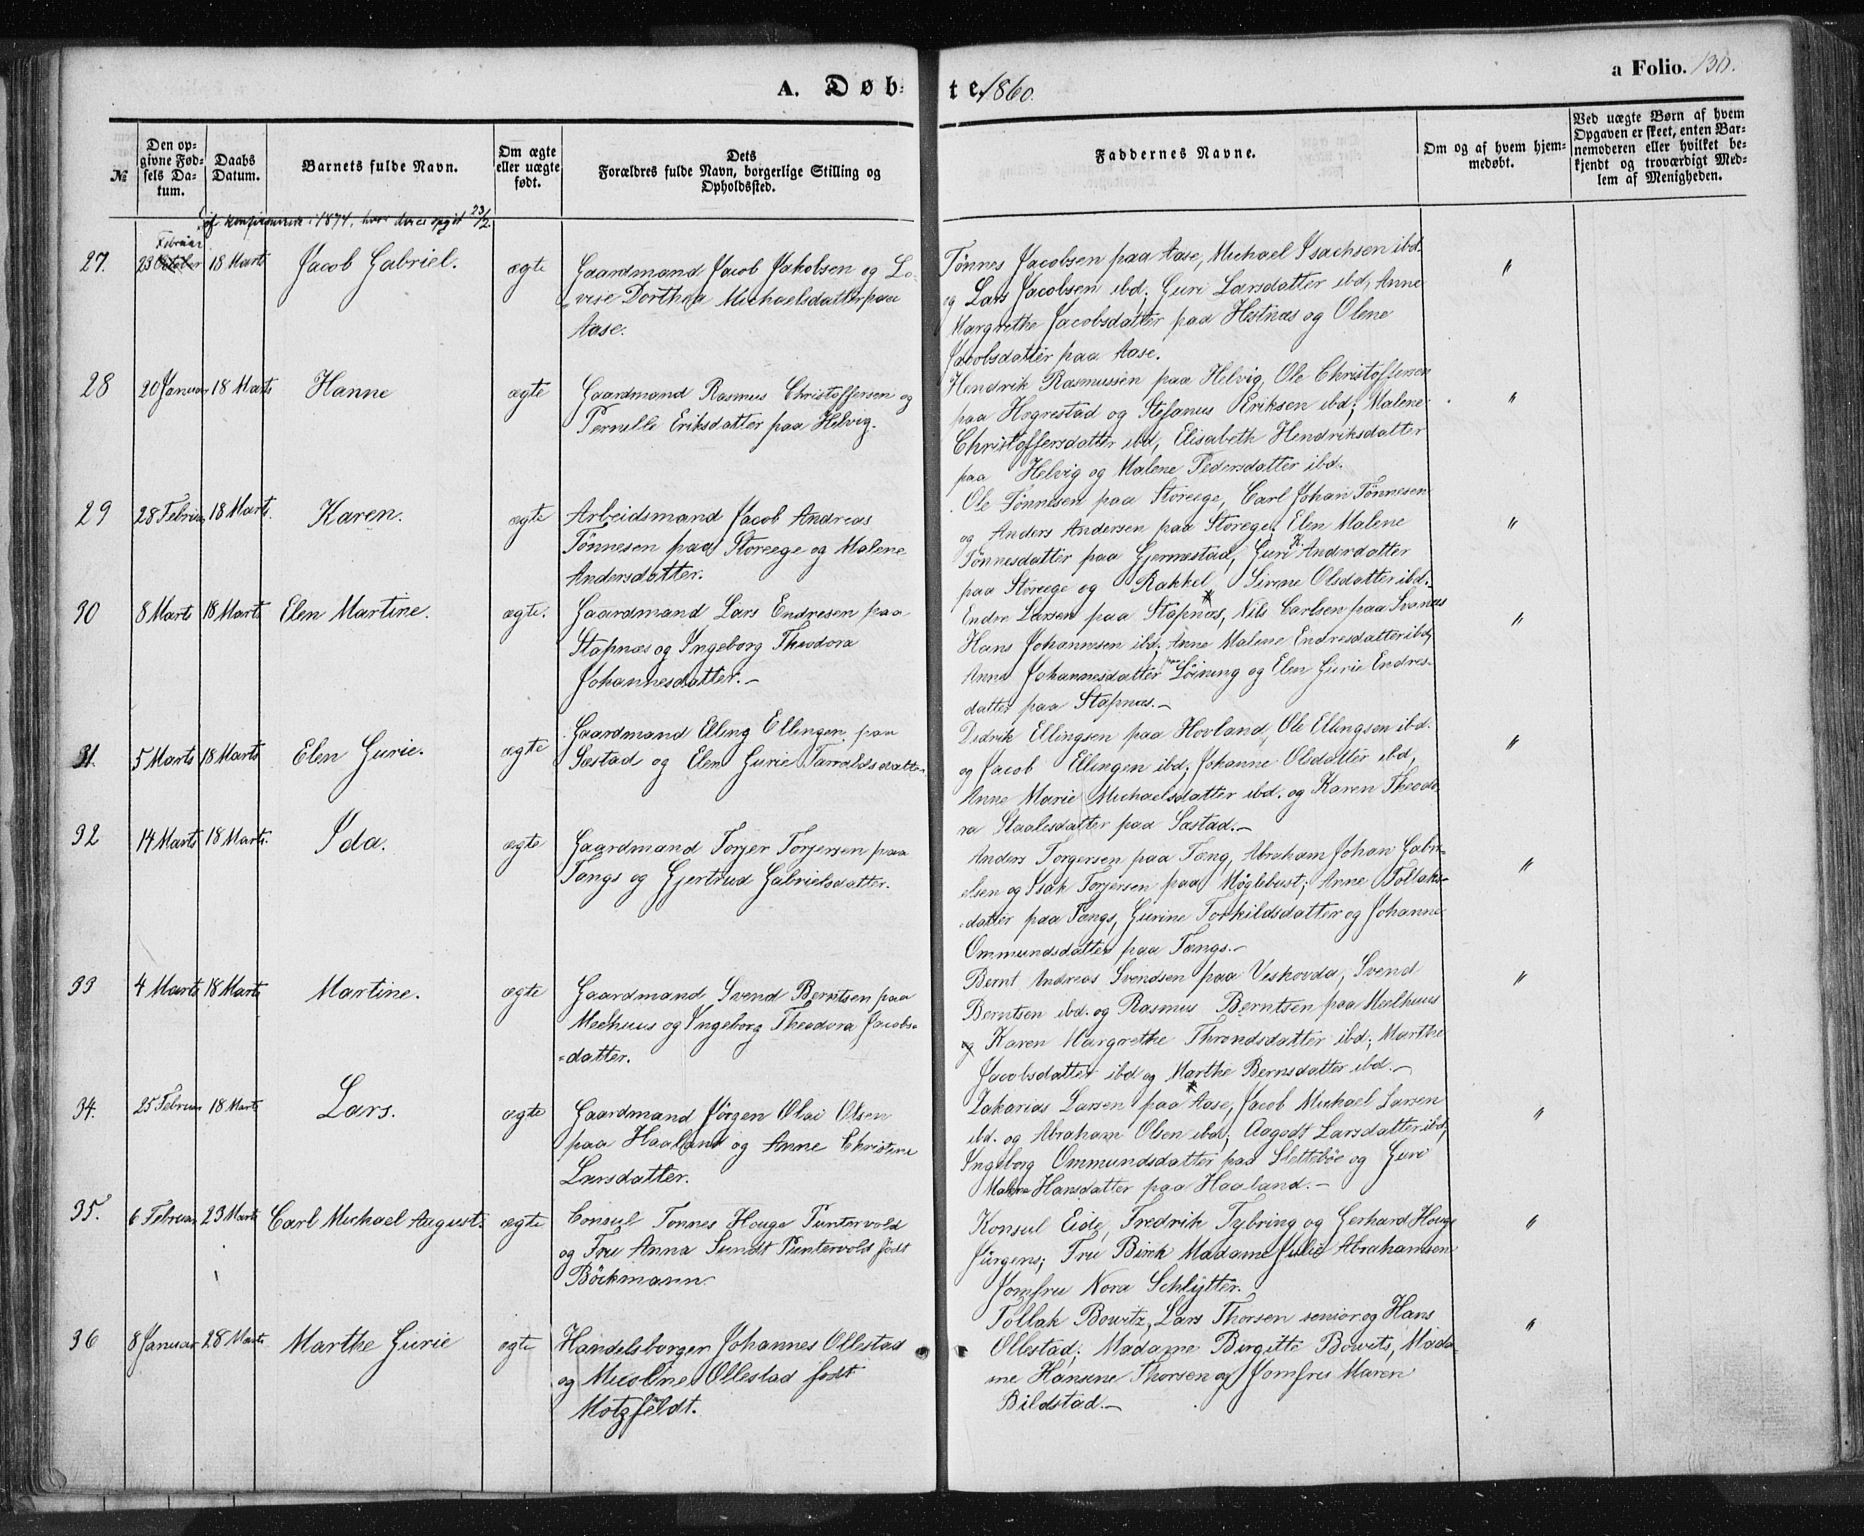 A. Døbte. 1860.
a Folio. 130.
№
Den opgivne Fødsels Datum.
Daabs Datum.
Barnets fulde Navn.
Om ægte eller uægte født.
Dets Forældres fulde Navn, borgerlige Stilling og Opholdssted.
Faddernes Navne.
Om og af hvem hjemmedøbt.
Ved uægte Børn af hvem Opgaven er skeet, enten Barnemoderen eller hvilket bekjendt og troværdigt Medlem af Menigheden.
1874, 23/2
27. 23 Februar October 18 Marts Jacob Gabriel. ægte
Gaardmand Jacob Jakobsen og Lo-
vise Dorthea Michaelsdatter paa
Aase.
Tønnes Jacobsen paa Aase, Michael Isachsen ibd.
og Lars Jacobsen ibd; Guri Larsdatter ibd, Anne
Margrethe Jacobsdatter paa Hestnæs og Olene
Jacobsdatter paa Aase.
"
28 20 Januar 18 Marts Hanne ægte
Gaardmand Rasmus Christoffersen og
Pernille Eriksdatter paa Helvig.
Hendrik Rasmussen paa Helvig, Ole Christoffersen
paa Hogrestad og Stefanus Eriksen ibd; Malene
Christoffersdatter ibd, Elisabeth Hendriksdatter
paa Helvig og Malene Pedersdatter ibd.
"
29 28 Februar 18 Marts. Karen. ægte
Arbeidsmand Jacob Andreas
Tønnesen paa Storeege og Malene
Andersdatter.
Ole Tønnesen paa Storeege, Carl Johan Tønnesen
og Anders Andersen paa Storege; Elen Malene
Tønnesdatter paa Gjermestad, Guri Andrdatter
paa Storeege og Rakkel Sirene Olsdatter ibd.
"
30 8 Marts 18 Marts Elen Martine. ægte.
Gaardmand Lars Endresen paa
Stapnæs og Ingeborg Theodora
Johannesdatter.-
Endre Larsen paa Stapnæs, Nils Carlsen paa Svanæs
Hans Johannesen ibd; Anne Malene Endresdatter ibd,
Anne Johannesdatter paa Löining og Elen Gurie Endres-
datter paa Stapnæs.-
"
31. 5 Marts 18 Marts Elen Gurie. ægte
Gaardmand Elling Ellingen paa
Sæstad og Elen Gurie Tarraldsdatter
Didrik Ellingsen paa Hovland, Ole Ellingsen ibd.
og Jacob Ellingen ibd; Johanne Olsdatter ibd,
Anne Marie Michaelsdatter ibd. og Karen Theodo-
ra Staalesdatter paa Sæstad.-
"
32 14 Marts 18 Marts. Ida. ægte
Gaardmand Torjer Torjersen paa
Tængs og Gjertrud Gabrielsdatter.
Anders Torgersen paa Tæng, Abraham Johan Gabri-
elsen og Isak Torjersen paa Møglebust; Anne Tollaks-
datter paa Tængs, Gurine Torkildsdatter og Johanne
Ommundsdatter paa Tængs.-
"
33 4 Marts 18 Marts Martine. ægte
Gaardmand Svend Berntsen paa
Meelhuus og Ingeborg Theodora Jacobs-
datter.
Bernt Andreas Svendsen paa Veshovda, Svend
Berntsen ibd. og Rasmus Berntsen paa Meelhuus
og Karen Margrethe Throndsdatter ibd; Marthe
Jacobsdatter ibd og Marthe Bernsdatter ibd.-
"
34. 25 Februar 18 Marts Lars. ægte
Gaardmand Jørgen Olai Olsen
paa Haaland og Anne Christine
Larsdatter.
Zakarias Larsen paa Aase, Jacob Michael Larsen
ibd. og Abraham Olsen ibd; Aagodt Larsdatter ibd,
Ingeborg Ommundsdatter paa Slettebøe og Guri
Malene Hansdatter paa Haaland.-
"
35. 6 Februar 23 Marts Carl Michael August. ægte
Consul Tønnes Houge Puntervold
og Fru Anna Sundt Puntervold født
Böckmann
Konsul Eide, Fredrik Tybring og Gerhard Houge
Jürgens; Fru Birch Madame Julie Abrahamsen
Jomfru Nora Schlytter.
"
36 8 Januar 28 Marts Marthe Gurie ægte
Handelsborger Johannes Ollestad
og Nicoline Ollestad født
Motzfeldt.
Tollak Bowitz, Lars Thorsen senior og Hans
Ollestad; Madame Birgitte Bowits, Mada-
me Hansine Thorsen og Jomfru Maren
Bildstad.-
"